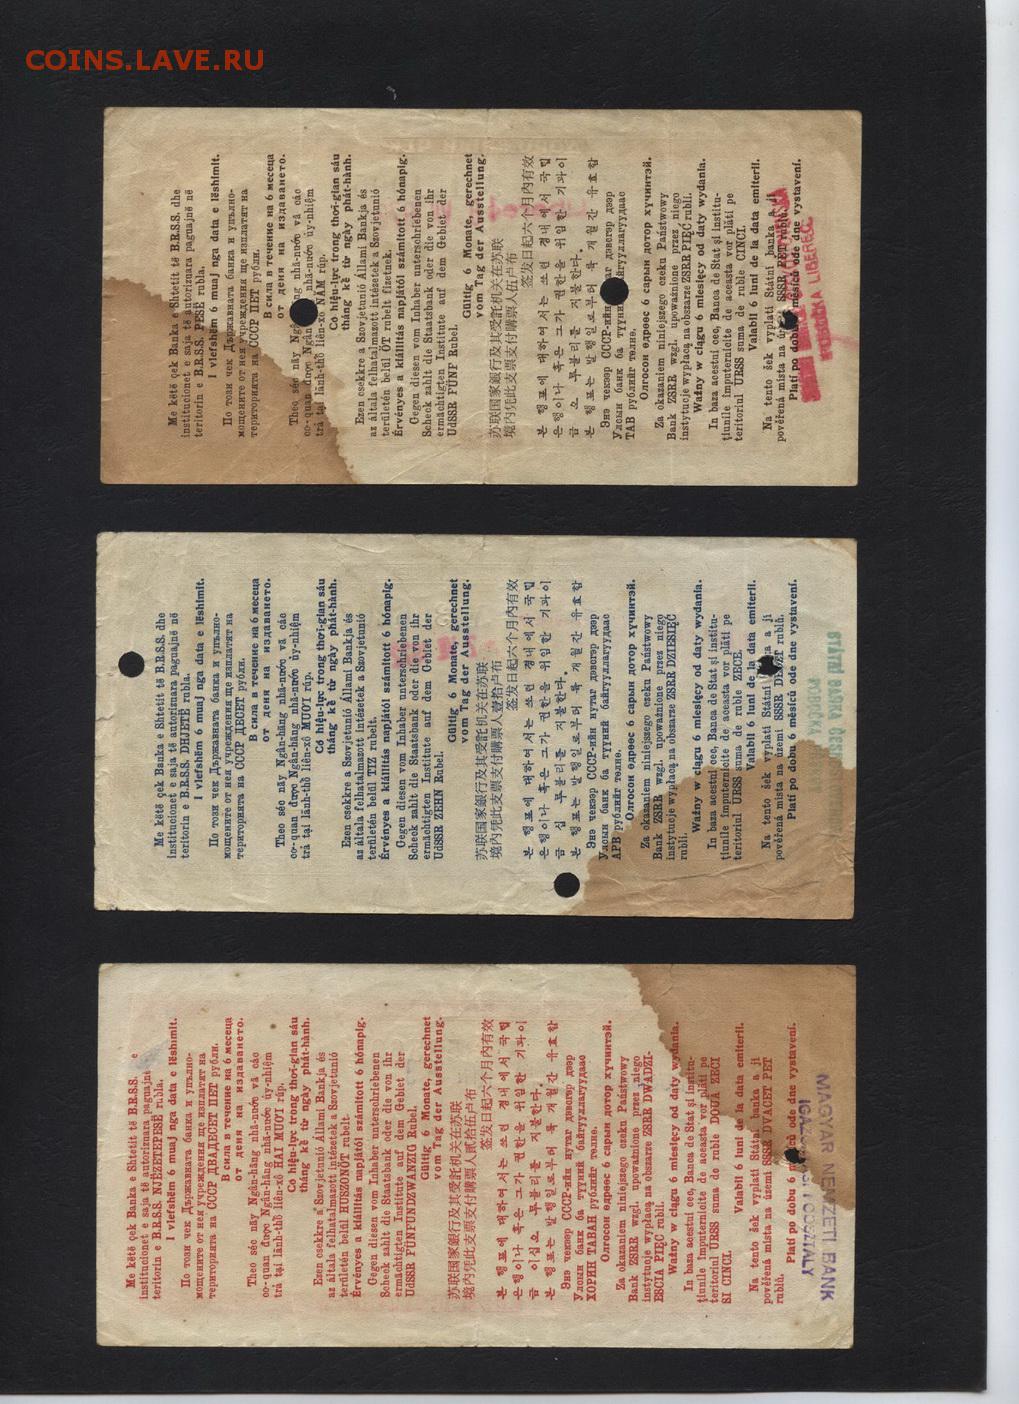 COINS.LAVE.RU
Me këtë çek Banka e Shtetit të B.R.S.S. dhe
institucionet e saja të autorizuara paguajnë në
teritorin e B.R.S.S. PESË rubla.
I vlefshëm 6 muaj nga data e lëshimit.
По този чек Държавната банка и упълно-
мощените от нея учреждения ще изплатят на
територията на СССР ПЕТ рубли.
В сила в течение на 6 месеца
от деня на издаването.
Theo séc nầy Ngân-hàng nhà-nước và các
cơ-quan được Ngân-hàng nhà-nước ủy-nhiệm
trả tại lãnh-thổ liên-xô NĂM rúp.
Có hiệu-lực trong thời-gian sáu
tháng kể từ ngày phát-hành.
Ezen csekkre a Szovjetunió Állami Bankja és
az általa felhatalmazott intézetek a Szovjetunió
területén belül ÖT rubelt fizetnek.
Érvényes a kiállítás napjától számított 6 hónapig.
Gegen diesen vom Inhaber unterschriebenen
Scheck zahlt die Staatsbank oder die von ihr
ermächtigten Institute auf dem Gebiet der
UdSSR FÜNF Rubel.
Gültig 6 Monate, gerechnet
vom Tag der Ausstellung.
苏联国家銀行及其受託机关在苏联
境內凭此支票支付購票人伍卢布
签发日起六个月内有效
본 행표에 대하여서는 쏘련 경내에서 국립
은행이나 혹은 그가 권한을 위임한 기관이
금 오 루블리를 지불한다.
본 행표는 발행일로부터 륙 개월간 유효함
Энэ чекээр СССР-ийн нутаг дэвсгэр дээр
Улсын банк ба түүний байгууллагуудаас
ТАВ рублийг төлнө.
Олгосон өдрөөс 6 сарын дотор хүчинтэй.
Za okazaniem niniejszego czeku Państwowy
Bank ZSRR wzgl. upoważnione przez niego
instytucje wypłacą na obszarze ZSRR PIĘĆ rubli.
Ważny w ciągu 6 miesięcy od daty wydania.
In baza acestui cec, Banca de Stat și institu-
țiunile imputernicite de aceasta vor plăti pe
teritoriul URSS suma de ruble CINCI.
Valabil 6 luni de la data emiterii.
Na tento šek vyplatí Státní banka a jí
pověřená místa na území SSSR PĚT
Platí po dobu 6 měsíců ode dne vystavení.
POBOČKA LIBEREC
Me këtë çek Banka e Shtetit të B.R.S.S. dhe
institucionet e saja të autorizuara paguajnë në
teritorin e B.R.S.S. DHJETË rubla.
I vlefshëm 6 muaj nga data e lëshimit.
По този чек Държавната банка и упълно-
мощените от нея учреждения ще изплатят на
територията на СССР ДЕСЕТ рубли.
В сила в течение на 6 месеца
от деня на издаването.
Theo séc nầy Ngân-hàng nhà-nước và các
cơ-quan được Ngân-hàng nhà-nước ủy-nhiệm
trả tại lãnh-thổ liên-xô MƯỜI rúp.
Có hiệu-lực trong thời-gian sáu
tháng kể từ ngày phát-hành.
Ezen csekkre a Szovjetunió Állami Bankja és
az általa felhatalmazott intézetek a Szovjetunió
területén belül TIZ rubelt.
Érvényes a kiállítás napjától számított 6 hónapig.
Gegen diesen vom Inhaber unterschriebenen
Scheck zahlt die Staatsbank oder die von ihr
ermächtigten Institute auf dem Gebiet der
UdSSR ZEHN Rubel.
Gültig 6 Monate, gerechnet
vom Tag der Ausstellung.
苏联国家銀行及其受託机关在苏联
境內凭此支票支付購票人壹拾卢布
签发日起六个月内有效
본 행표에 대하여서는 쏘련 경내에서 국립
은행이나 혹은 그가 권한을 위임한 기관이
금 십 루블리를 지불한다.
본 행표는 발행일로부터 륙 개월간 유효함
Энэ чекээр СССР-ийн нутаг дэвсгэр дээр
Улсын банк ба түүний байгууллагуудаас
АРВ рублийг төлнө.
Олгосон өдрөөс 6 сарын дотор хүчинтэй.
Za okazaniem niniejszego czeku Państwowy
Bank ZSRR wzgl. upoważnione przez niego
instytucje wypłacą na obszarze ZSRR DZIESIĘĆ
rubli.
Ważny w ciągu 6 miesięcy od daty wydania.
In baza acestui cec, Banca de Stat și institu-
țiunile imputernicite de aceasta vor plăti pe
teritoriul URSS suma de ruble ZECE.
Valabil 6 luni de la data emiterii.
Na tento šek vyplatí Státní banka a jí
pověřená místa na území SSSR DESET rublů.
Platí po dobu 6 měsíců ode dne vystavení.
STÁTNÍ BANKA
POBOČKA
Me këtë çek Banka e Shtetit të B.R.S.S. e
institucionet e saja të autorizuara paguajnë
teritorin e B.R.S.S. NJËZETEPESË rubla.
I vlefshëm 6 muaj nga data e lëshimit.
По този чек Държавната банка и упълно-
мощените от нея учреждения ще изплатят на
територията на СССР ДВАДЕСЕТ ПЕТ рубли.
В сила в течение на 6 месеца
от деня на издаването.
Theo séc nầy Ngân-hàng nhà-nước và các
cơ-quan được Ngân-hàng nhà-nước ủy-nhiệm
trả tại lãnh-thổ liên-xô HAI MƯƠI rúp.
Có hiệu-lực trong thời-gian sáu
tháng kể từ ngày phát-hành.
Ezen csekkre a Szovjetunió Állami Bankja és
az általa felhatalmazott intézetek a Szovjetunió
területén belül HUSZONÖT rubelt.
Érvényes a kiállítás napjától számított 6 hónapig.
Gegen diesen vom Inhaber unterschriebenen
Scheck zahlt die Staatsbank oder die von ihr
ermächtigten Institute auf dem Gebiet der
UdSSR FÜNFUNDZWANZIG Rubel.
Gültig 6 Monate, gerechnet
vom Tag der Ausstellung.
苏联国家銀行及其受託机关在苏联
境內凭此支票支付購票人貳拾伍卢布
签发日起六个月内有效
본 행표에 대하여서는 쏘련 경내에서 국립
은행이나 혹은 그가 권한을 위임한 기관이
금 이십오 루블리를 지불한다.
본 행표는 발행일로부터 륙 개월간 유효함
Энэ чекээр СССР-ийн нутаг дэвсгэр дээр
Улсын банк ба түүний байгууллагуудаас
ХОРИН ТАВАН рублийг төлнө.
Олгосон өдрөөс 6 сарын дотор хүчинтэй.
Za okazaniem niniejszego czeku Państwowy
Bank ZSRR wzgl. upoważnione przez niego
instytucje wypłacą na obszarze ZSRR DWADZI-
EŚCIA PIĘĆ rubli.
Ważny w ciągu 6 miesięcy od daty wydania.
In baza acestui cec, Banca de Stat și institu-
țiunile imputernicite de aceasta vor plăti pe
teritoriul URSS suma de ruble DOUĂ ZECI
ȘI CINCI.
Valabil 6 luni de la data emiterii.
Na tento šek vyplatí Státní banka a jí
pověřená místa na území SSSR DVACET PĚT
rublů.
Platí po dobu 6 měsíců ode dne vystavení.
MAGYAR NEMZETI BANK